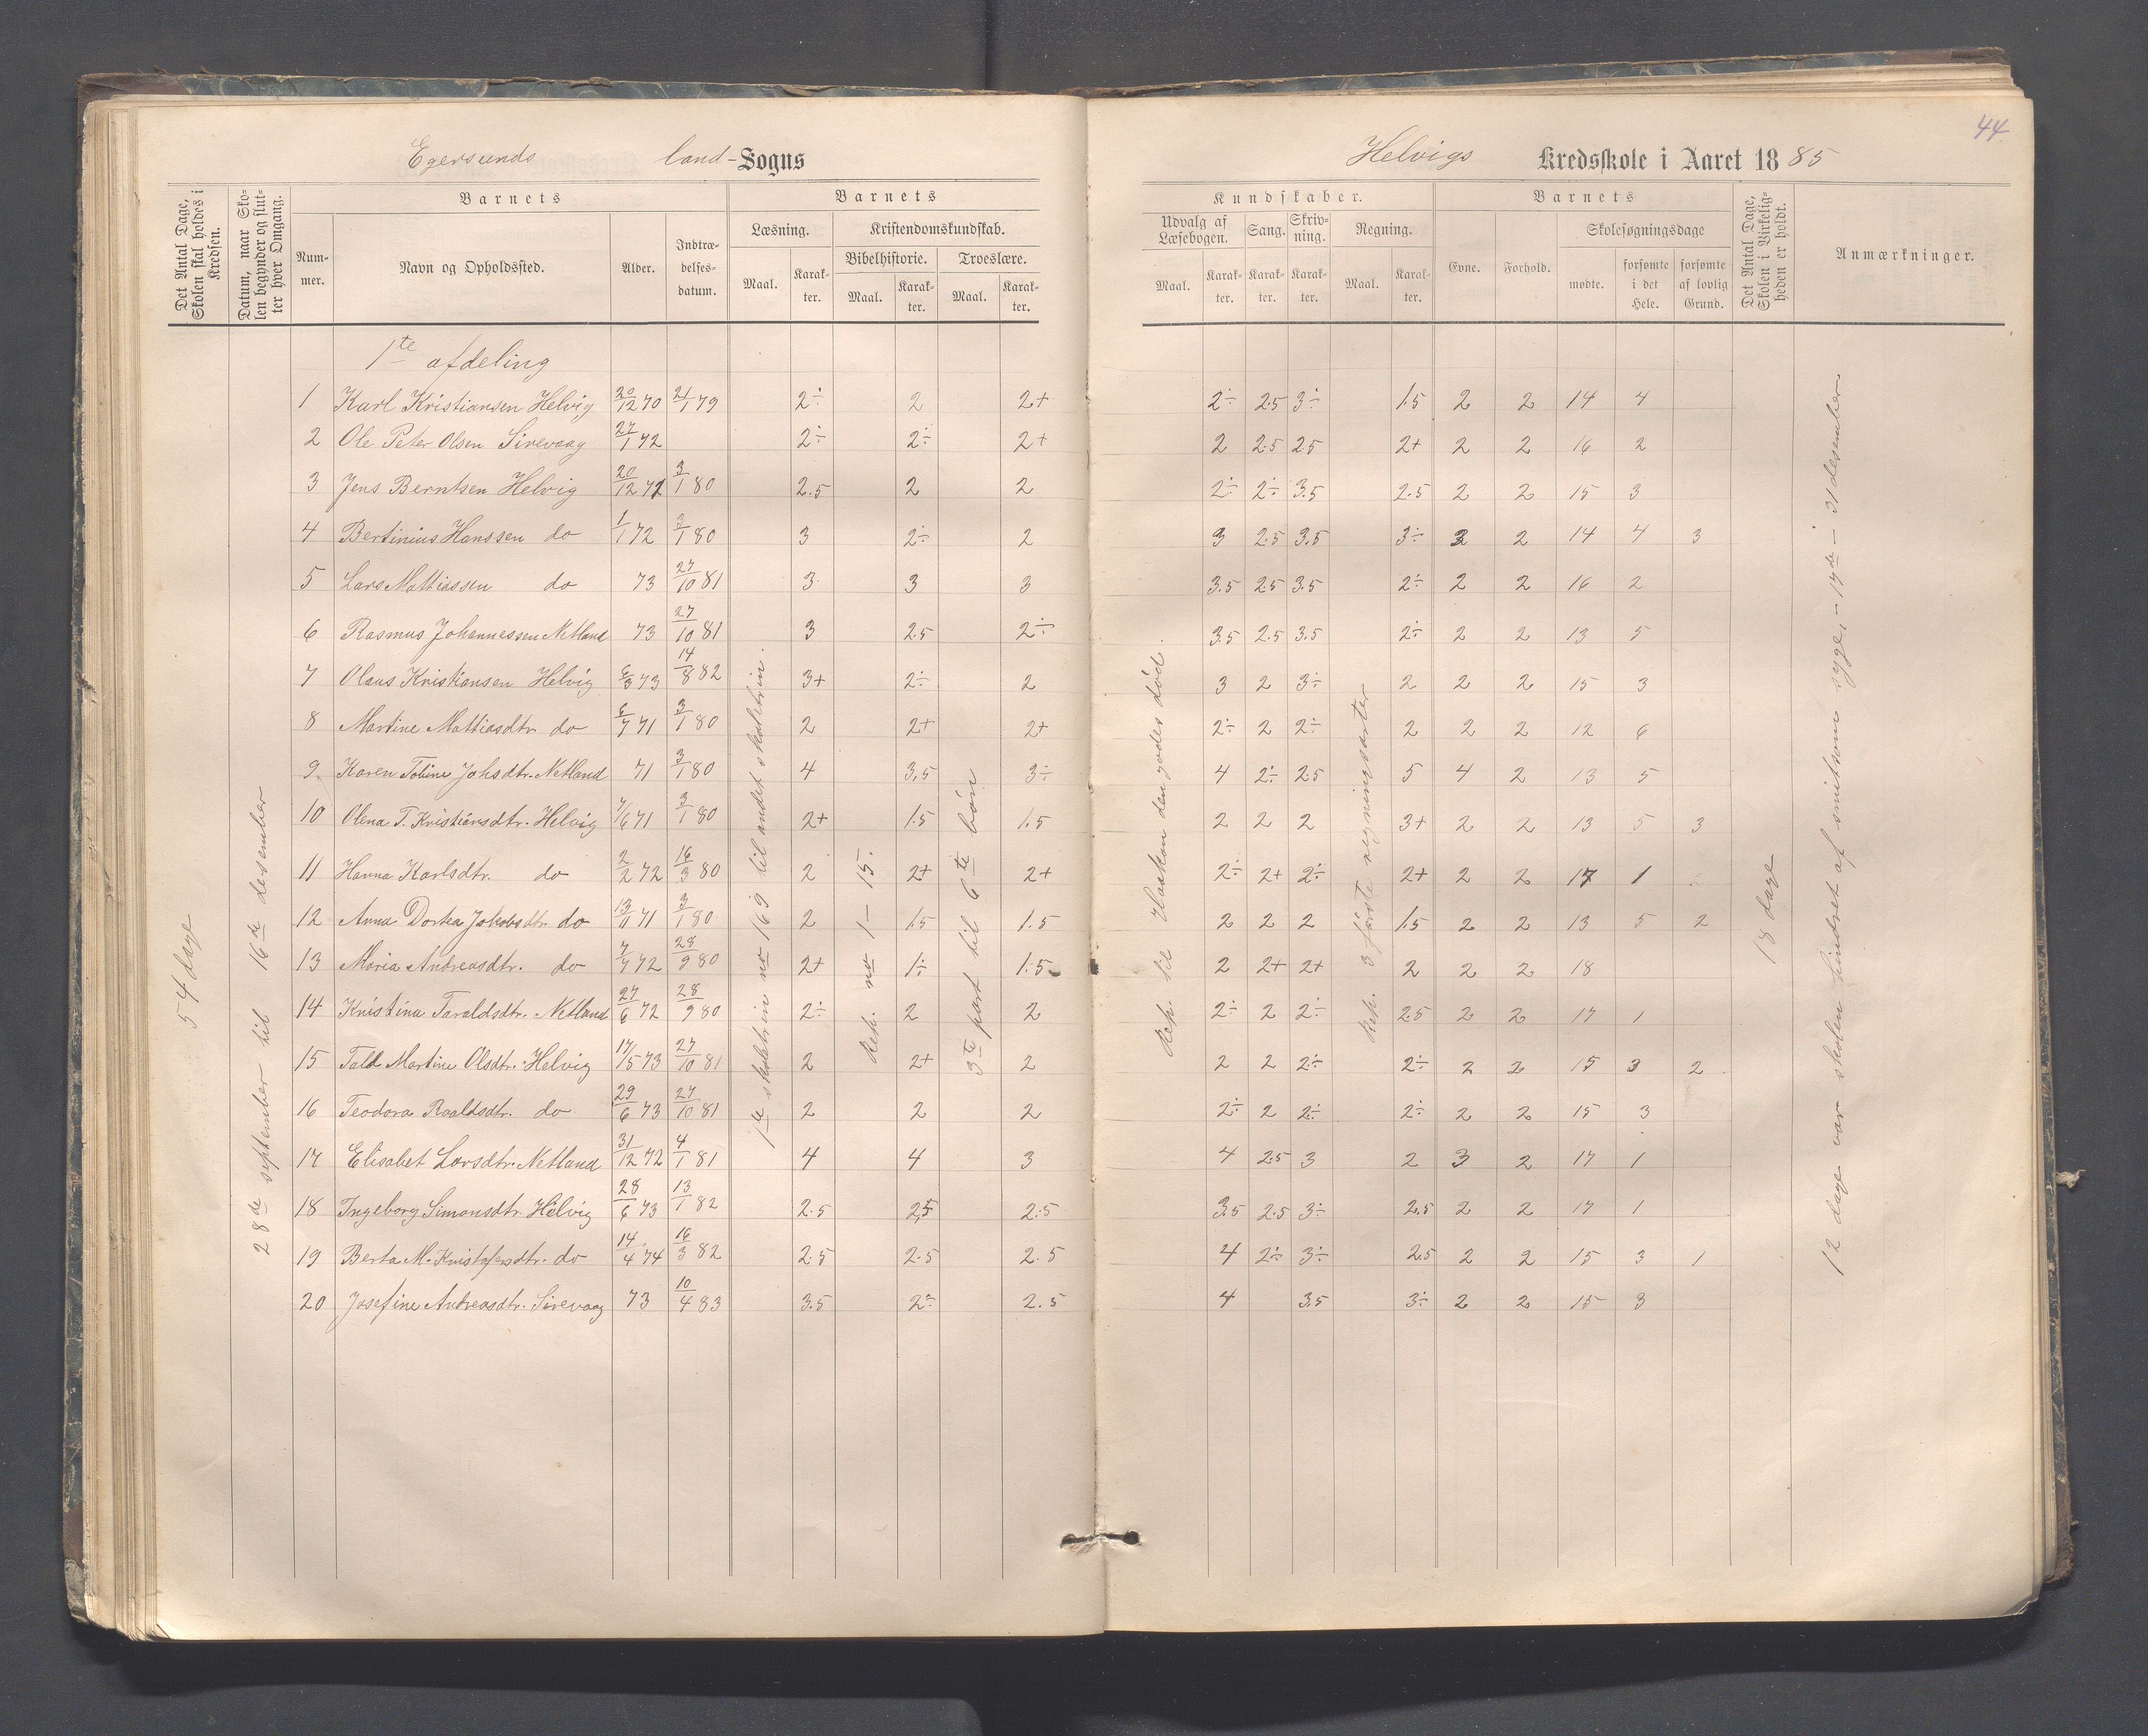 44
Egersunds land-Sogns
Helvigs Kredsskole i Aaret 1885
Det Antal Dage, Skolen skal holdes i Kredsen.
Datum, naar Skolen begynder og slutter hver Omgang.
Barnets
Nummer.
Navn og Opholdssted.
Alder.
Indtrædelsesdatum.
Barnets
Læsning.
Maal. Karakter.
Kristendomskundskab.
Bibelhistorie.
Maal. Karakter.
Troeslære.
Maal. Karakter.
Kundskaber.
Udvalg af Læsebogen.
Maal. Karakter.
Sang.
Karakter.
Skrivning.
Karakter.
Regning.
Maal. Karakter.
Barnets
Evne.
Forhold.
Skolesøgningsdage
mødte.
forsømte i det Hele.
forsømte af lovlig Grund.
Det Antal Dage, Skolen i Virkeligheden er holdt.
Anmærkninger.
54 dage
28de september til 16de desember
1te afdeling
1 Karl Kristiansen Helvig 20/12 70 21/1 79 2÷ 2 2+ 2÷ 2.5 3÷ 1.5 2 2 14 4
2 Ole Peter Olsen Sirevaag 27/1 72 2÷ 2÷ 2+ 2 2.5 2.5 2+ 2 2 16 2
3 Jens Berntsen Helvig 20/12 72 3/1 80 2.5 2 2 2÷ 2÷ 3.5 2.5 2 2 15 3
4 Bertinius Hanssen do 1/1 72 3/1 80 3 2÷ 2 3 2.5 3.5 3÷ 3 2 14 4 3
5 Lars Mattiassen do 73 27/10 81 3 3 3 3.5 2.5 3.5 2÷ 2 2 16 2
6 Rasmus Johannessen Netland 73 27/10 81 3 2.5 2÷ 3.5 2.5 3.5 2÷ 2 2 13 5
7 Olaus Kristiansen Helvig 6/3 73 14/8 82 3+ 2÷ 2 3 2 3÷ 2 2 2 15 3
8 Martine Mattiasdtr do 6/7 71 3/1 80 2 2+ 2+ 2÷ 2 2÷ 2 2 2 12 6
9 Karen Tobine Johsdtr. Netland 71 3/1 80 4 3.5 3÷ 4 2÷ 2.5 5 4 2 13 5
10 Olena T. Kristiansdtr. Helvig 7/6 71 3/1 80 2+ 1.5 1.5 2 2 2 3+ 2 2 13 5 3
11 Hanna Karlsdtr. do 2/2 72 16/3 80 2 2+ 2+ 2÷ 2+ 2÷ 2+ 2 2 17 1
12 Anna Dortea Jakobsdtr. do 13/11 71 3/1 80 2 1.5 1.5 2 2 2 1.5 2 2 13 5 2
13 Maria Andreasdtr. do 7/7 72 28/9 80 2+ 1÷ 1.5 2 2+ 2+ 2 2 2 18
14 Kristine Taraldsdtr. Netland 27/6 72 28/9 80 2÷ 2 2 2÷ 2 2÷ 2.5 2 2 17 1
15 Tale Martine Olsdtr. Helvig 17/5 73 27/10 81 2 2+ 2 2 2 2÷ 2÷ 2 2 15 3 2
16 Teodora Roaldsdtr. do 29/6 73 27/10 81 2 2 2 2÷ 2 2÷ 2÷ 2 2 15 3
17 Elisabet Larsdtr. Netland 31/12 72 4/1 81 4 4 3 4 2.5 3 2 3 2 17 1
18 Ingeborg Simonsdtr. Helvig 28/6 73 13/1 82 2.5 2.5 2.5 3.5 2.5 3÷ 2.5 2 2 17 1
19 Berta M. Kristofersdtr. do 14/4 74 16/3 82 2.5 2.5 2.5 4 2÷ 3÷ 2.5 2 2 15 3 1
20 Josefine Andreasdtr. Sirevaag 73 10/4 83 3.5 2÷ 2.5 4 3.5 3÷ 2 2 15 3
1ste skoletrin no 169 til andet skoletrin.
Rep. no 1 – 15.
3te part til 6te bön
Rep. til Haakon den godes død.
Rep. 3 förste regningsarter
18 dage
12 dage var skolen hindret af smitsom syge, – 17de – 31 desember